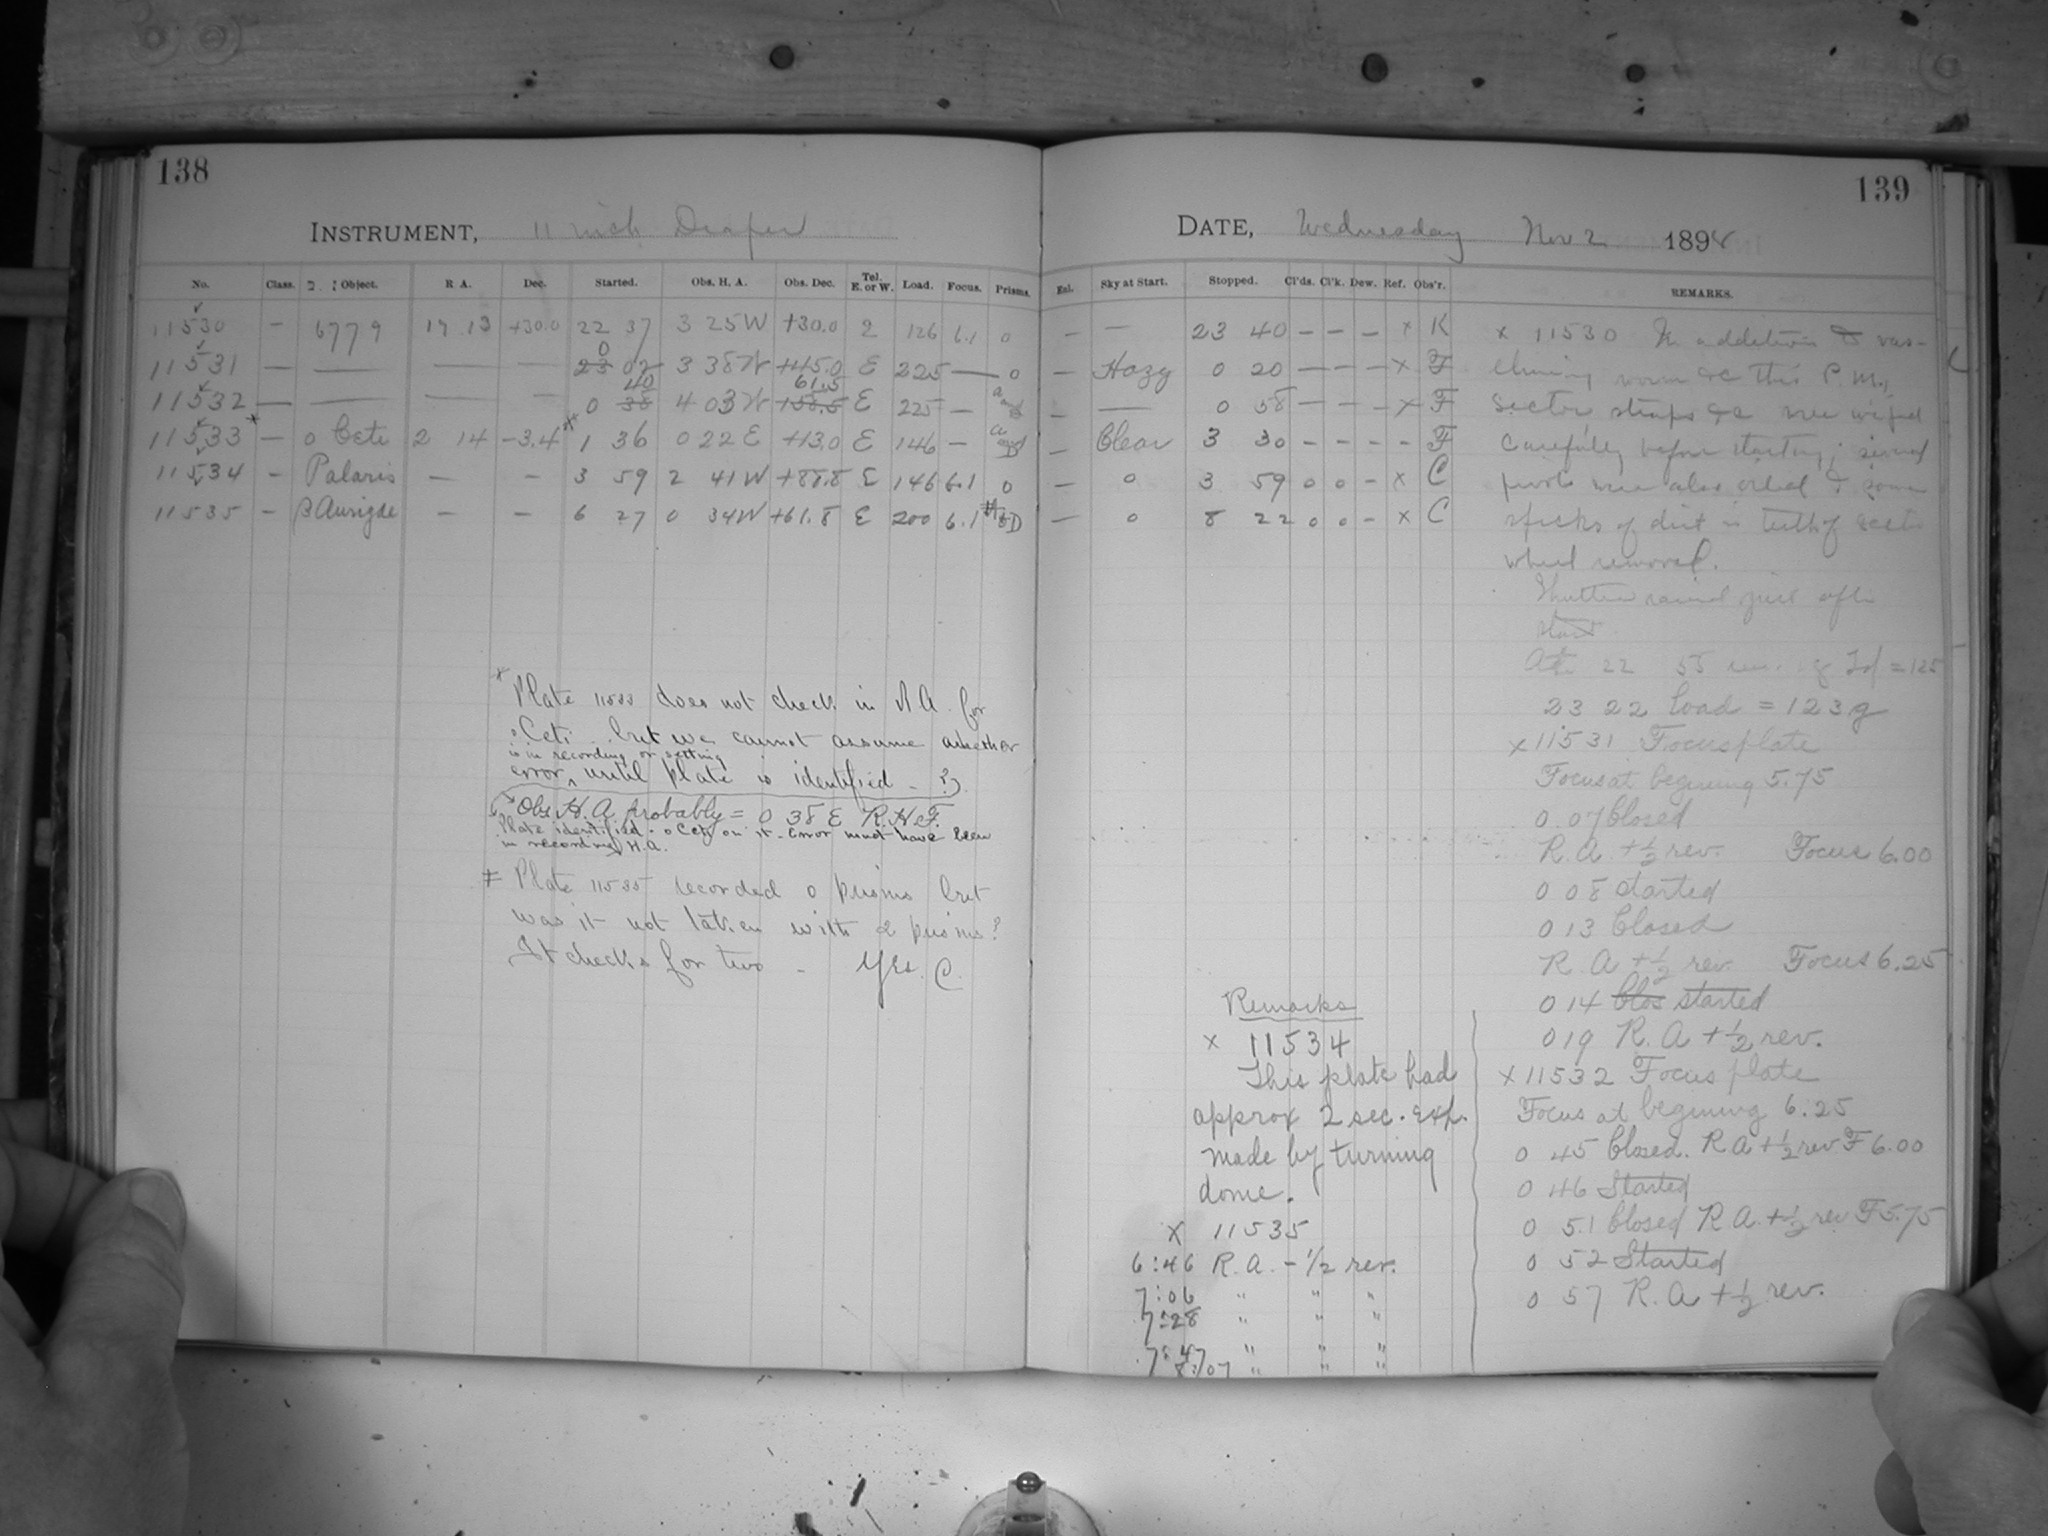 138
INSTRUMENT, 11 inch Draper
No. Class. Object. R A. Dec. Started. Obs. H. A. Obs. Dec. Tel. E. or W. Load. Focus. Prisms.
11530 — 6779 19 13 +30.0 22 37 3 25W +30.0 2 126 6.1 0
11531 — — — — 0 23 02 3 38W +45.0 E 225 — 0
11532 — — — — 0 38 40 4 03W +58.5 61.5 E 225 —
11533 * — o Ceti 2 14 -3.4 * 1 36 0 22 E +13.0 E 146 —
11534 — Palaris — — 3 59 2 41W +88.8 E 146 6.1 0
11535 — β Aurigae — — 6 27 0 34W +61.8 E 200 6.1
* Plate 11533 does not check in R A. for
o Ceti but we cannot assume whether
is in recording or setting
error ^ until plate is identified –
Obs. H. A. probably = 0 38 E R.H.F.
Plate identified. o Ceti on it. Error must have been
in recording H.A.
Plate 11535 recorded 0 prisms but
was it not taken with 2 prisms?
It checks for two – Yes. C.
139
DATE, Wednesday Nov 2 1898
Ent. Sky at Start. Stopped. Cl'ds. Cl'k. Dew. Ref. Obs'r. REMARKS.
— — 23 40 — — — x K
— Hazy 0 20 — — — x F
— — 0 58 — — — x F
— Clear 3 30 — — — — F
— 0 3 59 0 0 — x C
— 0 8 22 0 0 — x C
x 11530 In addition to vas-
elining worm &c this P.M.,
sector, straps &c were wiped
carefully before starting; several
pivots were also oiled & some
specks of dirt in teeth of sector
wheel removed.
Shutter raised just after
start
At 22 55 = 125
23 22 load = 123g
x 11531 Focus plate
Focus at begining 5.75
0 07 Closed
R. A. + 1/2 rev. Focus 6.00
0 08 Started
0 13 Closed
R. A + 1/2 rev. Focus 6.25
0 14 Clos started
0 19 R. A + 1/2 rev.
x 11532 Focus plate
Focus at begining 6.25
0 45 Closed. R A + 1/2 rev F 6.00
0 46 Started
0 51 Closed R A. + 1/2 rev F 5.75
0 52 Started
0 57 R. A + 1/2 rev.
Remarks
x 11534
This plate had
approx 2 sec. exp.
made by turning
dome.
x 11535
6:46 R. A. – 1/2 rev.
7:06 " " "
7:28 " " "
7:47 " " "
8:07 " " "